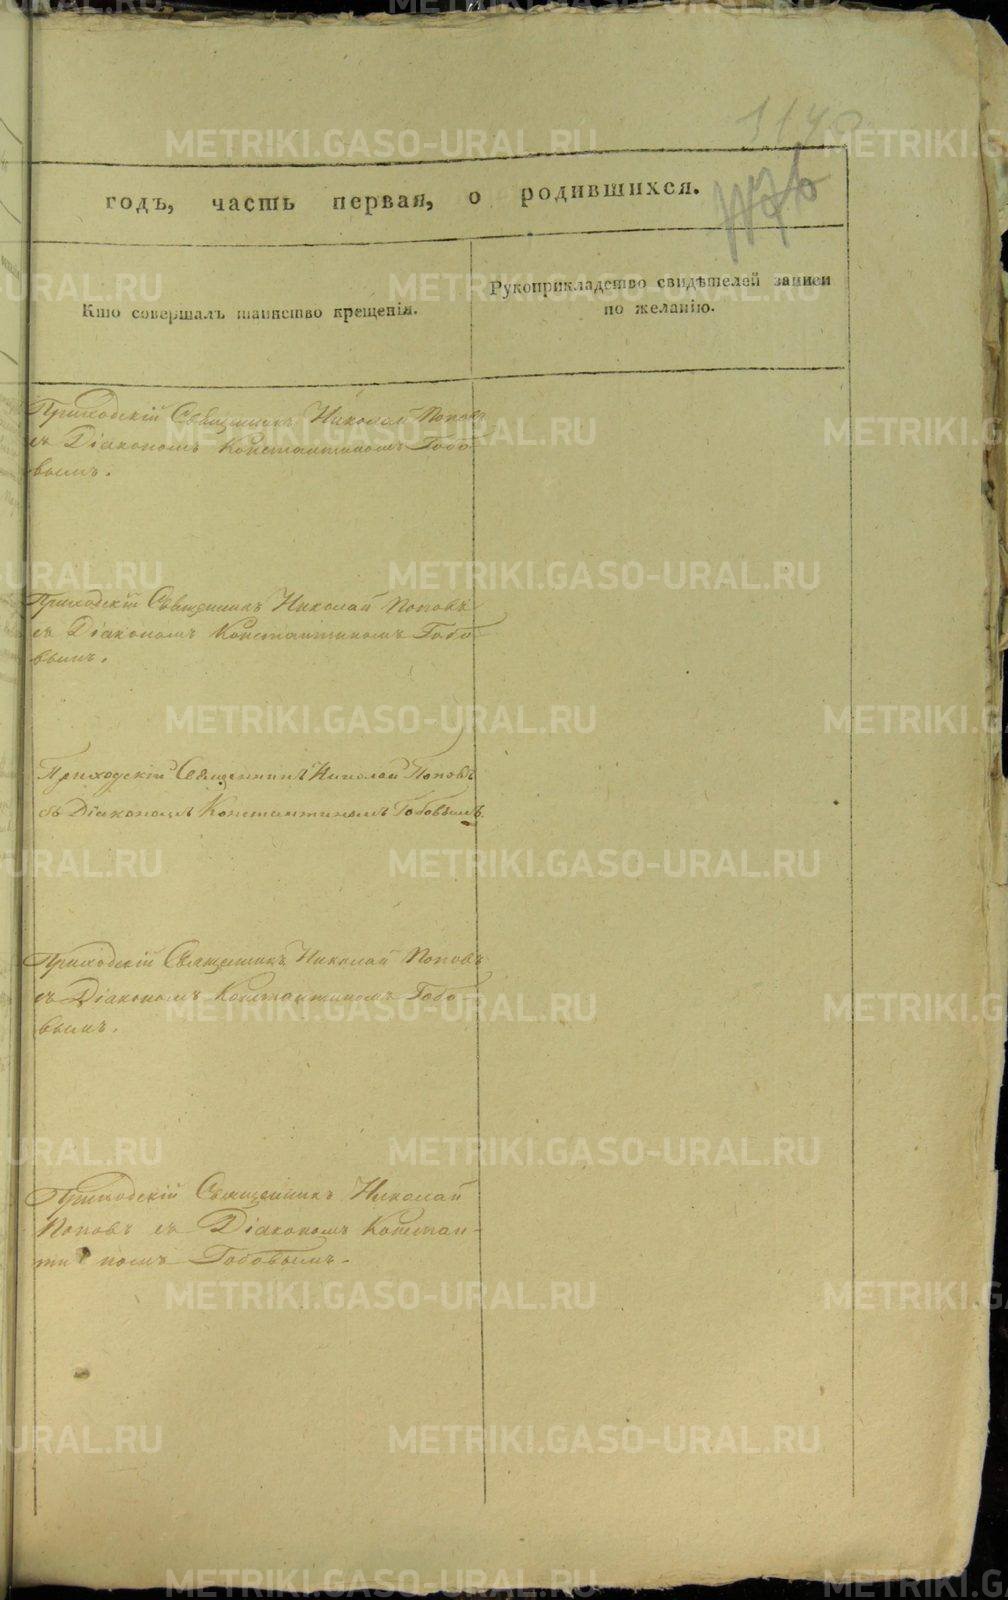 1140
годъ, часть первая, о родившихся.
Кто совершалъ таинство крещенія.
Рукоприкладство свидѣтелей записи
по желанію.
Приходскій Священникъ Николай Поповъ
съ Діакономъ Константиномъ Гобо
вымъ.
Приходскій Священникъ Николай Поповъ
съ Діакономъ Константиномъ Гобо
вымъ.
Приходскій Священникъ Николай Поповъ
съ Діакономъ Константиномъ Гобовымъ.
Приходскій Священникъ Николай Поповъ
съ Діакономъ Константиномъ Гобо
вымъ.
Приходскій Священникъ Николай
Поповъ съ Діакономъ Констан-
ти номъ Гобовымъ.
METRIKI.GASO-URAL.RU